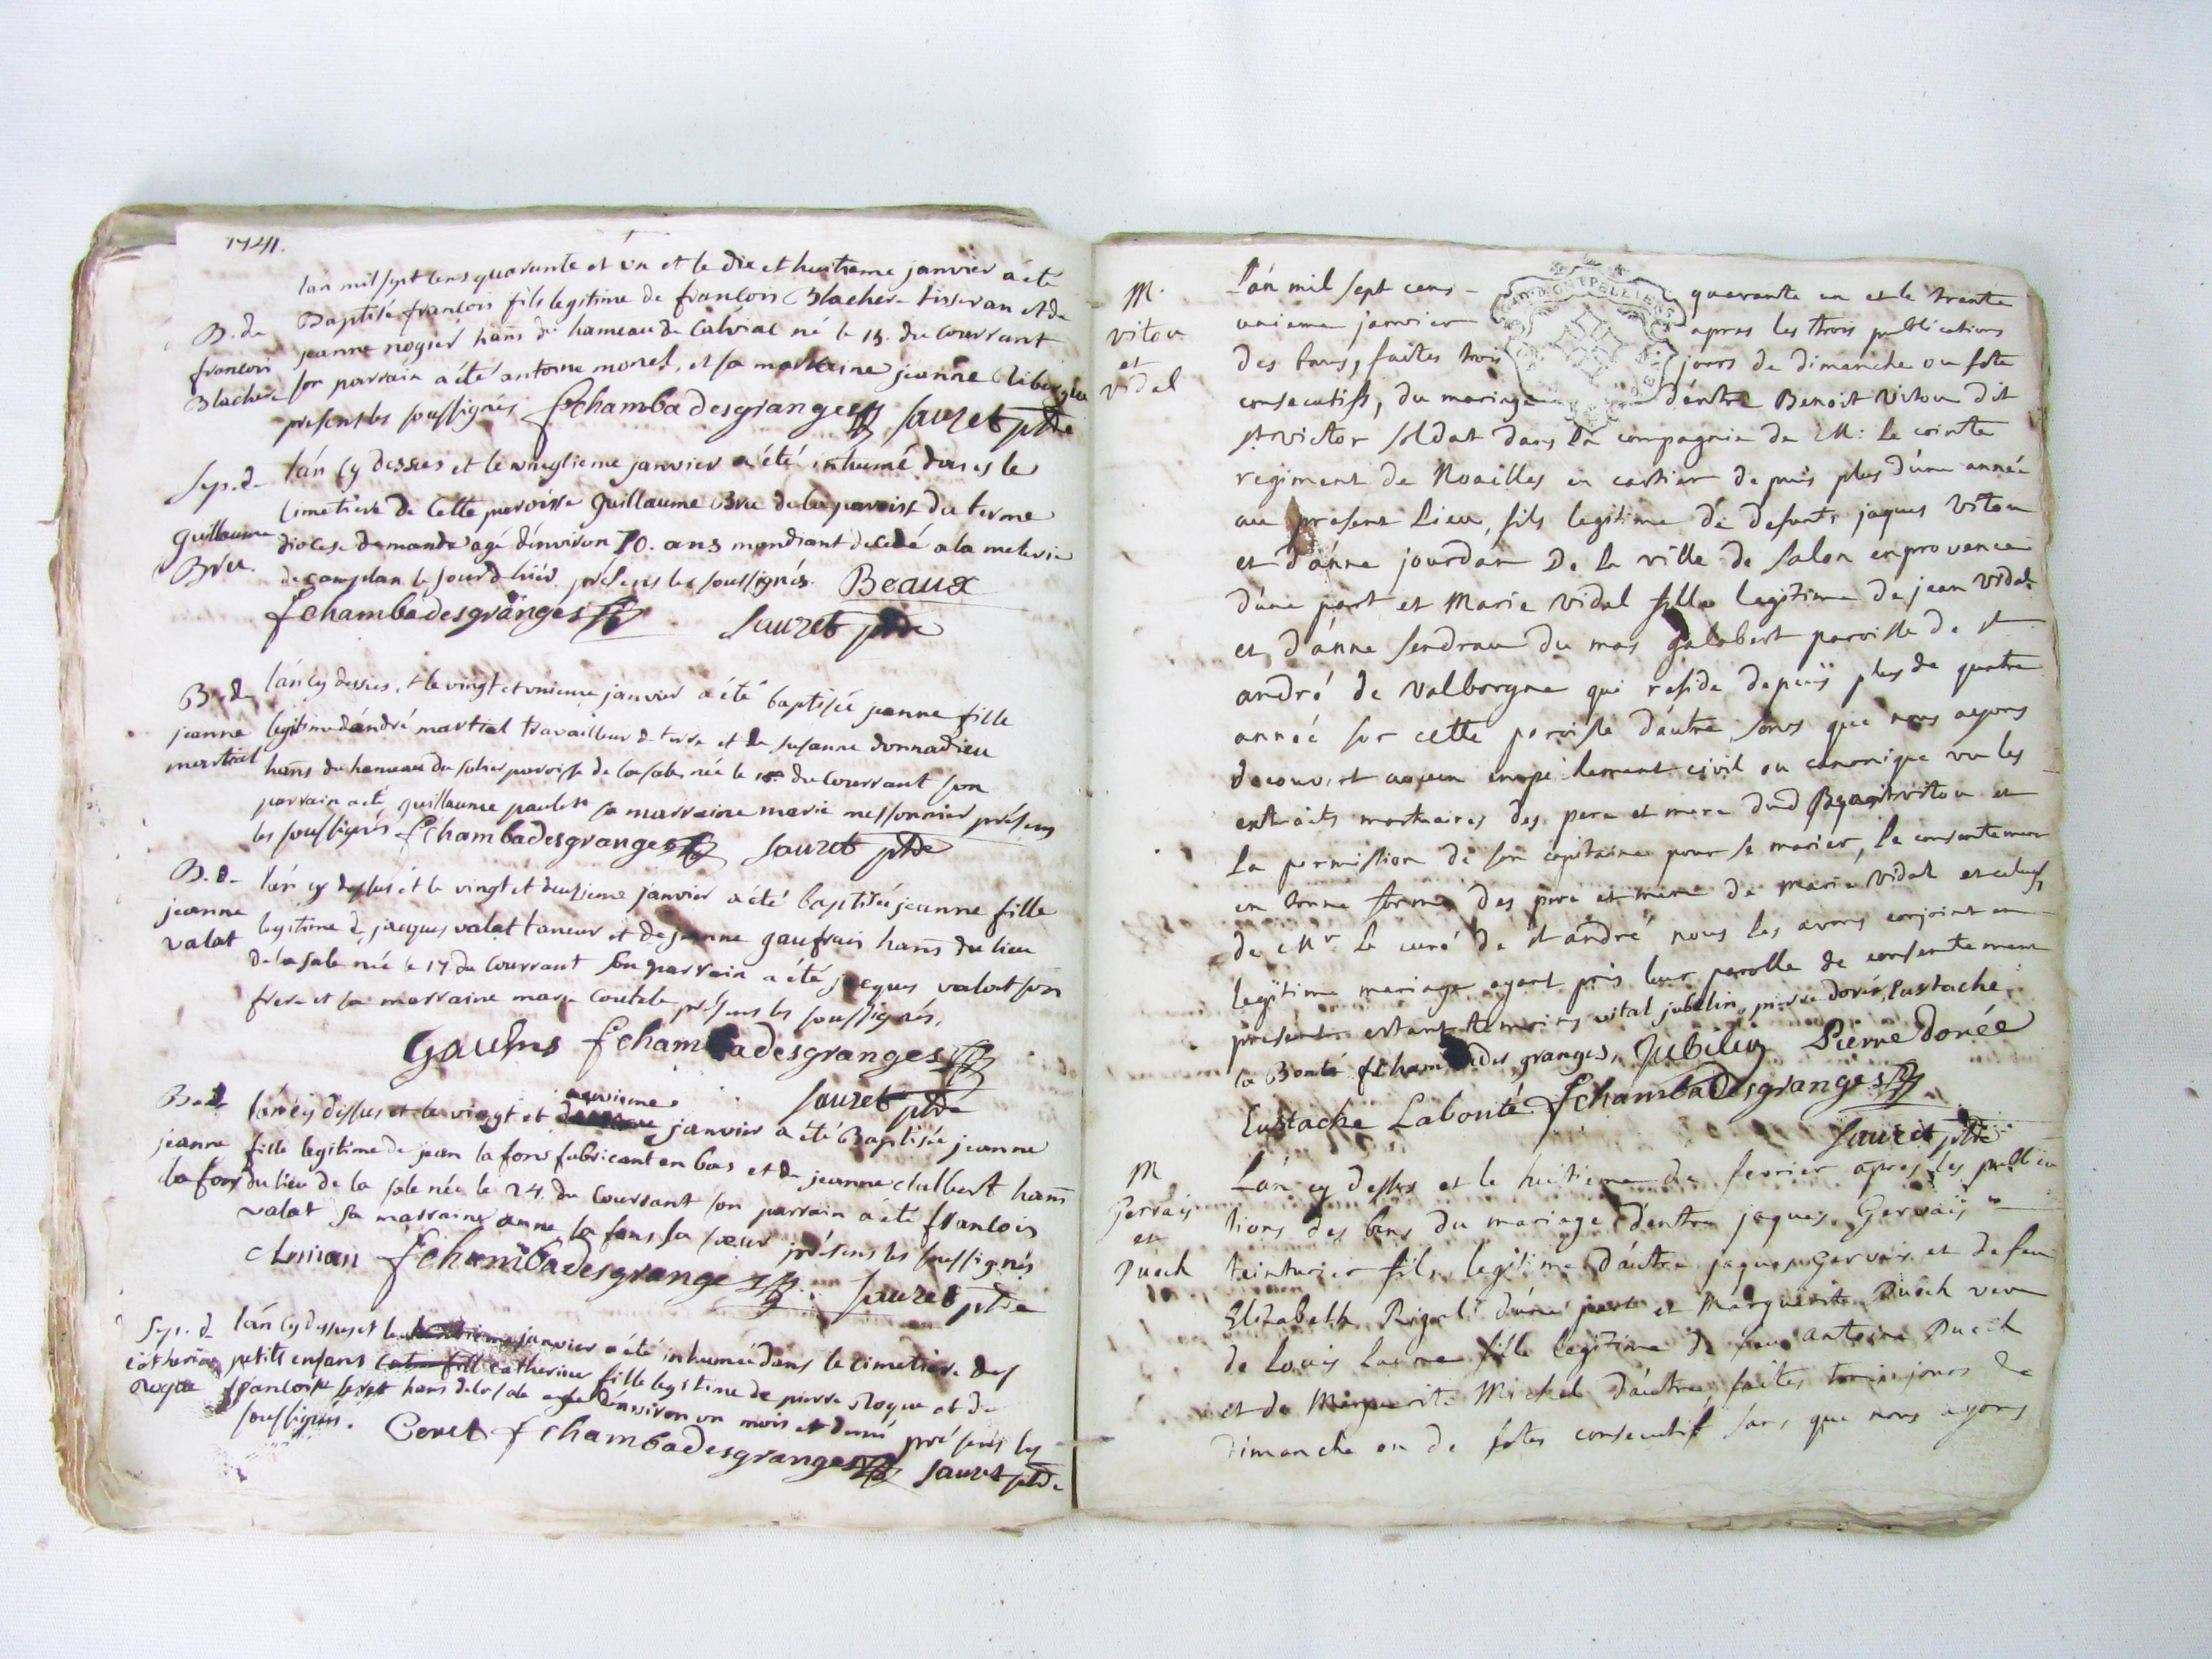 1741.
B. de
francois
Blacher
lan mil sept cens quarante et un et le dix et huitieme janvier a été
Baptisé francois fils legitime de francois Blacher tisseran et de
jeanne nogier hans du hameau de Calviac né le 15. du courrant
son parrain a été antoine monel, et sa marraine jeanne
presens les soussignés fchambadesgranges sauzet ptre
Sep. de
Guillaume
Bru.
lán cy dessus et le vingtieme janvier a été inhumé dans le
cimetiere de cette paroisse Guillaume Bru de la paroisse du terme
diocese de mande agé d'environ 70. ans mandiant decedé a la meterie
de camplan le jour d'hier. présens les soussignés. Beaux
fchambadesgranges sauzet ptre
B. de
jeanne
martial
lán cy dessus, et le vingt et unieme janvier a été baptisée jeanne fille
legitime d'andré martial travailleur de terre et de susanne donnadieu
hans du hameau du solier paroisse de la sale, née le du courrant son
parrain a été guillaume sa marraine marie messonnier présens
les soussignés fchambadesgranges sauzet ptre
B. d.
jeanne
valat
lán cy dessus et le vingt et deuxieme janvier a été baptisée jeanne fille
legitime de jacques valat taneur et de jeanne gaufrais hans du lieu
de la sale née le 17. du courrant son parrain a été jacques valat son
frere et sa marraine marie présens les soussignés.
fchambadesgranges
sauzet ptre
B. d
jeanne
lafons
lán cy dessus et le vingt et janvier a été Baptisée jeanne
fille legitime de jean lafons fabricant en bas et de jeanne dalbert hans
du lieu de la sale née le 24. du courrant son parrain a été francois
valat sa marraine anne lafons sa soeur présens les soussignés
fchambadesgranges sauzet ptre
Sep. d
catherine
roque
lán cy dessus et le janvier a été inhumée dans le cimetiere des
petits enfans catherine fille legitime de pierre Roque et de
francoise hans de la sale agée d'environ un mois et demi présens les
soussignés. fchambadesgranges sauzet ptre
M.
vitou
et
vidal
MONTPELLIER
L'án mil sept cens - quarante un et le trente
unieme janvier apres les trois publications
des bans, faites trois jours de dimanche ou fete
consecutifs, du mariage d'entre Benoit Vitou dit
st victor soldat dans la compagnie de Mr: le cointe
regiment de Noailles en cartier depuis plus d'une année
au present Lieu, fils legitime de defunts jaques Vitou
et d'anne jourdan De la ville de Salon en provence
d'une part et Marie Vidal fille legitime de jean Vidal
et d'anne Sendrau du mas galabert paroisse de st
andré de Valborgne qui reside depuis plus de quatre
année sur cette paroisse d'autre, sans que nous ayons
decouvert aucun empeichement civil ou canonique vu les
extraits mortuaires des pere et mere dud Benoit vitou et
la permission de son capitaine pour se marier, le consentement
en bonne forme des pere et mere de marie Vidal et celuy
de Mr le curé de st andré nous les avons conjoint en
legitime mariage ayant pris leur parolle de consentement
presents estant temoins vital jubelin, pierre dorée, Eustache
la Bonté fchambadesgranges, Jubilin Pierre Dorée
Eustache Labonté fchambadesgranges
sauzet ptre
M
Gervais
et
Puech
L'án cy dessus et le huitieme de fevrier apres les publica
tions des bans du mariage d'entre jaques Gervais
teinturier fils legitime d'autre jaques Gervais et de feu
Elizabeth Rigal d'une part et Marguerite Puech veuve
de Louis fille legitime de feu antoine Puech
et de Marguerite Michel d'autre, faites trois jours de
dimanche ou de fetes consecutif sans que nous ayons